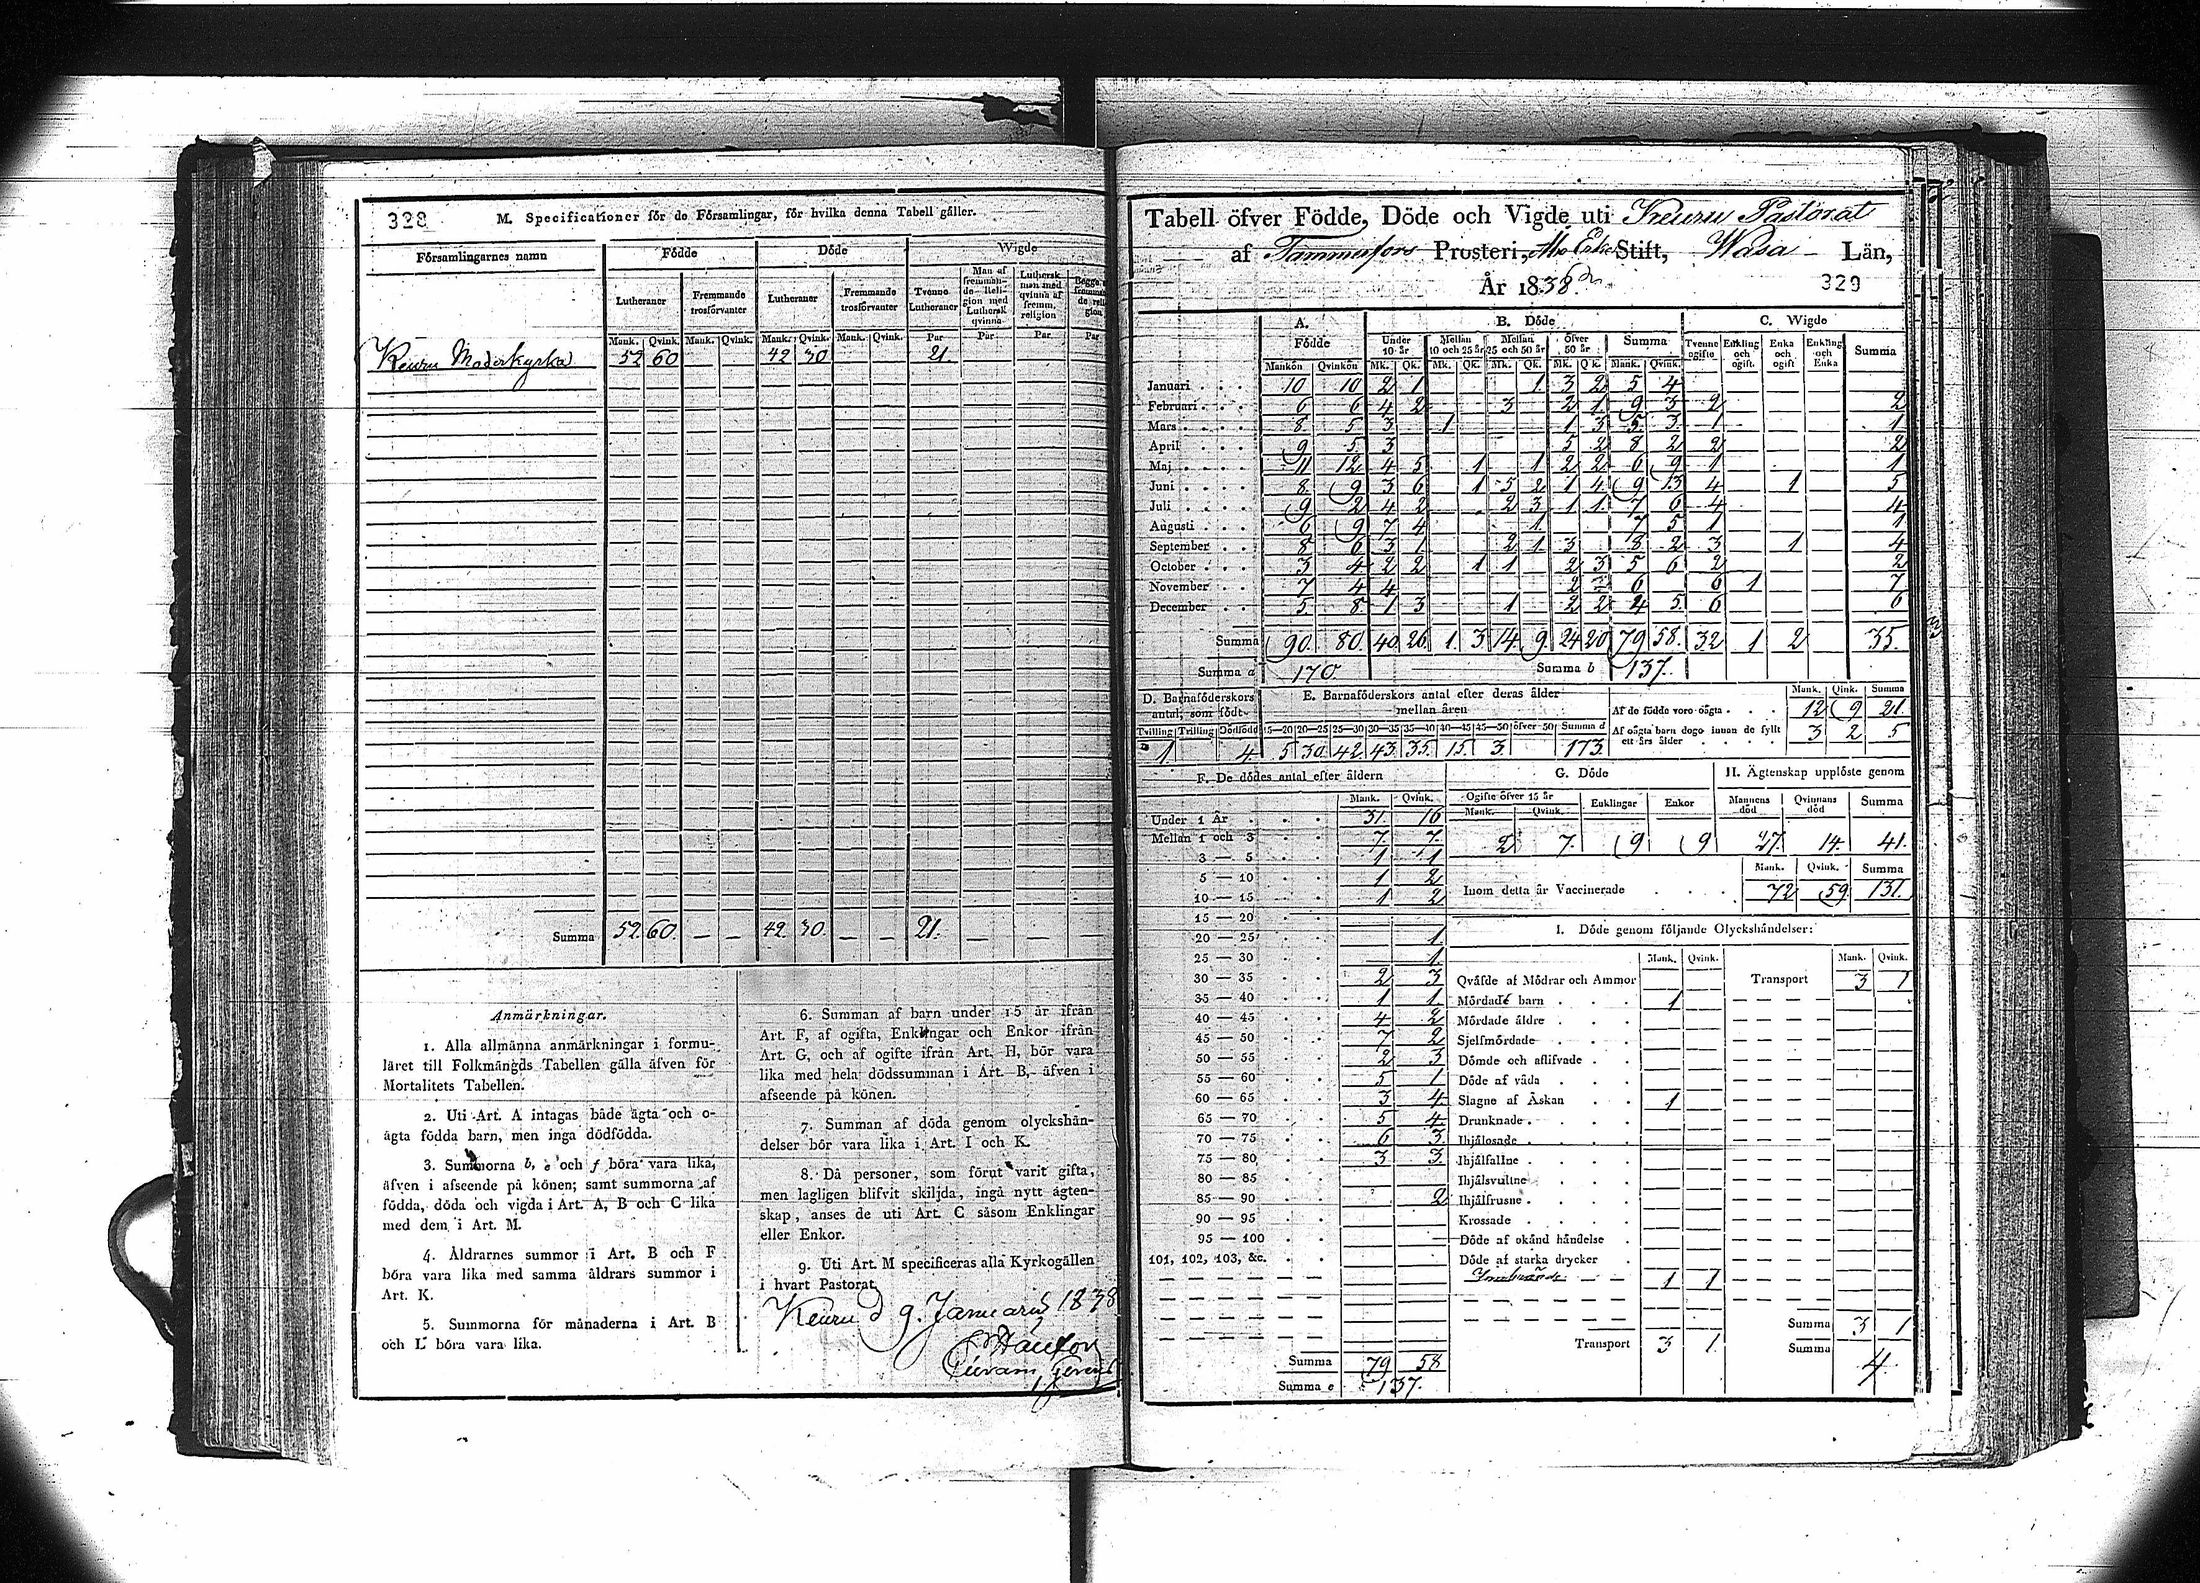 328
M. Specificationer för de Församlingar, för hvilka denna Tabell gäller.
Församlingarnes namn Födde Döde Wigde
Lutheraner Fremmande trosförvanter Lutheraner Fremmande trosförvanter Tvenne Lutheraner Man af fremmande Religion med Luthersk qvinna Luthersk man med qvinna af fremm. religion
Mank. Qvink. Mank. Qvink. Mank. Qvink. Mank. Qvink. Par Par Par Par
Keuru Moderkyrka 52 60 42 30 21
Summa 52. 60. — — 42 30. — — 21. — — —
Anmärkningar.
1. Alla allmänna anmärkningar i formu-
läret till Folkmängds Tabellen gälla äfven för
Mortalitets Tabellen.
2. Uti Art. A intagas både ägta och o-
ägta födda barn, men inga dödfödda.
3. Summorna b, e och f böra vara lika,
äfven i afseende på könen; samt summorna af
födda, döda och vigda i Art. A, B och C lika
med dem i Art. M.
4. Åldrarnes summor i Art. B och F
böra vara lika med samma åldrars summor i
Art. K.
5. Summorna för månaderna i Art. B
och L böra vara lika.
6. Summan af barn under 15 år ifrån
Art. F, af ogifta, Enklingar och Enkor ifrån
Art. G, och af ogifte ifrån Art. H, bör vara
lika med hela dödssumman i Art. B, äfven i
afseende på könen.
7. Summan af döda genom olyckshän-
delser bör vara lika i Art. I och K.
8. Då personer, som förut varit gifta,
men lagligen blifvit skiljda, ingå nytt ägten-
skap, anses de uti Art. C såsom Enklingar
eller Enkor.
9. Uti Art. M specificeras alla Kyrkogällen
i hvart Pastorat.
Keuru d 9. Januarii 1838
Tabell öfver Födde, Döde och Vigde uti Keuru Pastorat
af Tammerfors Prosteri, Åbo Erke Stift, Wasa Län,
År 1838.
329
A. Födde B. Döde C. Wigde
Under 10 år Mellan 10 och 25 år Mellan 25 och 50 år öfver 50 år Summa Tvenne ogifte Enkling och ogift. Enka och ogift Enkling och Enka Summa
Mankön Qvinkön Mk. Qk. Mk. Qk. Mk. Qk. Mk. Qk. Mank. Qvink.
Januari 10 10 2 1 1 3 2 5 4
Februari 6 6 4 2 3 2 1 9 3 2 2
Mars 8 5 3 1 1 3 5 3 1 1
April 9 5 3 5 2 8 2 2 2
Maj 11 12 4 5 1 1 2 2 6 9 1 1
Juni 8 9 3 6 1 5 2 1 4 9 13 4 1 5
Juli 9 2 4 2 2 3 1 1 7 6 4 4
Augusti 6 9 7 4 1 7 5 1 1
September 8 6 3 1 2 1 3 8 2 3 1 4
October 3 4 2 2 1 1 2 3 5 6 2 2
November 7 4 4 2 – 6 6 1 7
December 5 8 1 3 1 2 2 4 5 6 6
Summa 90. 80. 40. 26. 1. 3. 14. 9. 24 20 79 58. 32 1 2 35.
Summa a 170 Summa b 137.
D. Barnaföderskors antal, som födt. E. Barnaföderskors antal efter deras ålder mellan åren Mank. Qink. Summa
Af de födde voro oägta 12 9 21.
Tvilling Trilling Dödfödd 15—20 20—25 25—30 30—35 35—40 40—45 45—50 öfver 50 Summa d
Af oägta barn dogo innan de fyllt ett års ålder 3 2 5
1. 4. 5 30. 42. 43. 35. 15. 3 173
F. De dödes antal efter åldern G. Döde H. Ägtenskap upplöste genom
Mank. Qvink. Ogifte öfver 15 år Mank. Qvink. Enklingar Enkor Mannens död Qvinnans död Summa
2 7. 9 9 27. 14. 41.
Under 1 År 31. 16
Mellan 1 och 3 7. 7.
3 — 5 1 1
5 — 10 1 2
10 — 15 1 2
15 — 20
20 — 25 1.
25 — 30 1.
30 — 35 2 3
35 — 40 1 1
40 — 45 4 2
45 — 50 7 2
50 — 55 2 3
55 — 60 5 1
60 — 65 3 4
65 — 70 5 4
70 — 75 6 3.
75 — 80 3 3.
80 — 85
85 — 90 2
90 — 95
95 — 100
101, 102, 103, &c.
Summa 79 58
Summa e 137.
Mank. Qvink. Summa
Inom detta år Vaccinerade 72 59 131.
I. Döde genom följande Olyckshändelser:
Mank. Qvink. Mank. Qvink.
Qväfde af Mödrar och Ammor Transport 3 1
Mördade barn 1
Mördade äldre
Sjelfmördade
Dömde och aflifvade
Döde af våda
Slagne af Åskan 1
Drunknade
Ihjälosade
Ihjälfallne
Ihjälsvultne
Ihjälfrusne
Krossade
Döde af okänd händelse
Döde af starka drycker
1 1
Summa 3 1
Transport 3 1 Summa 4.